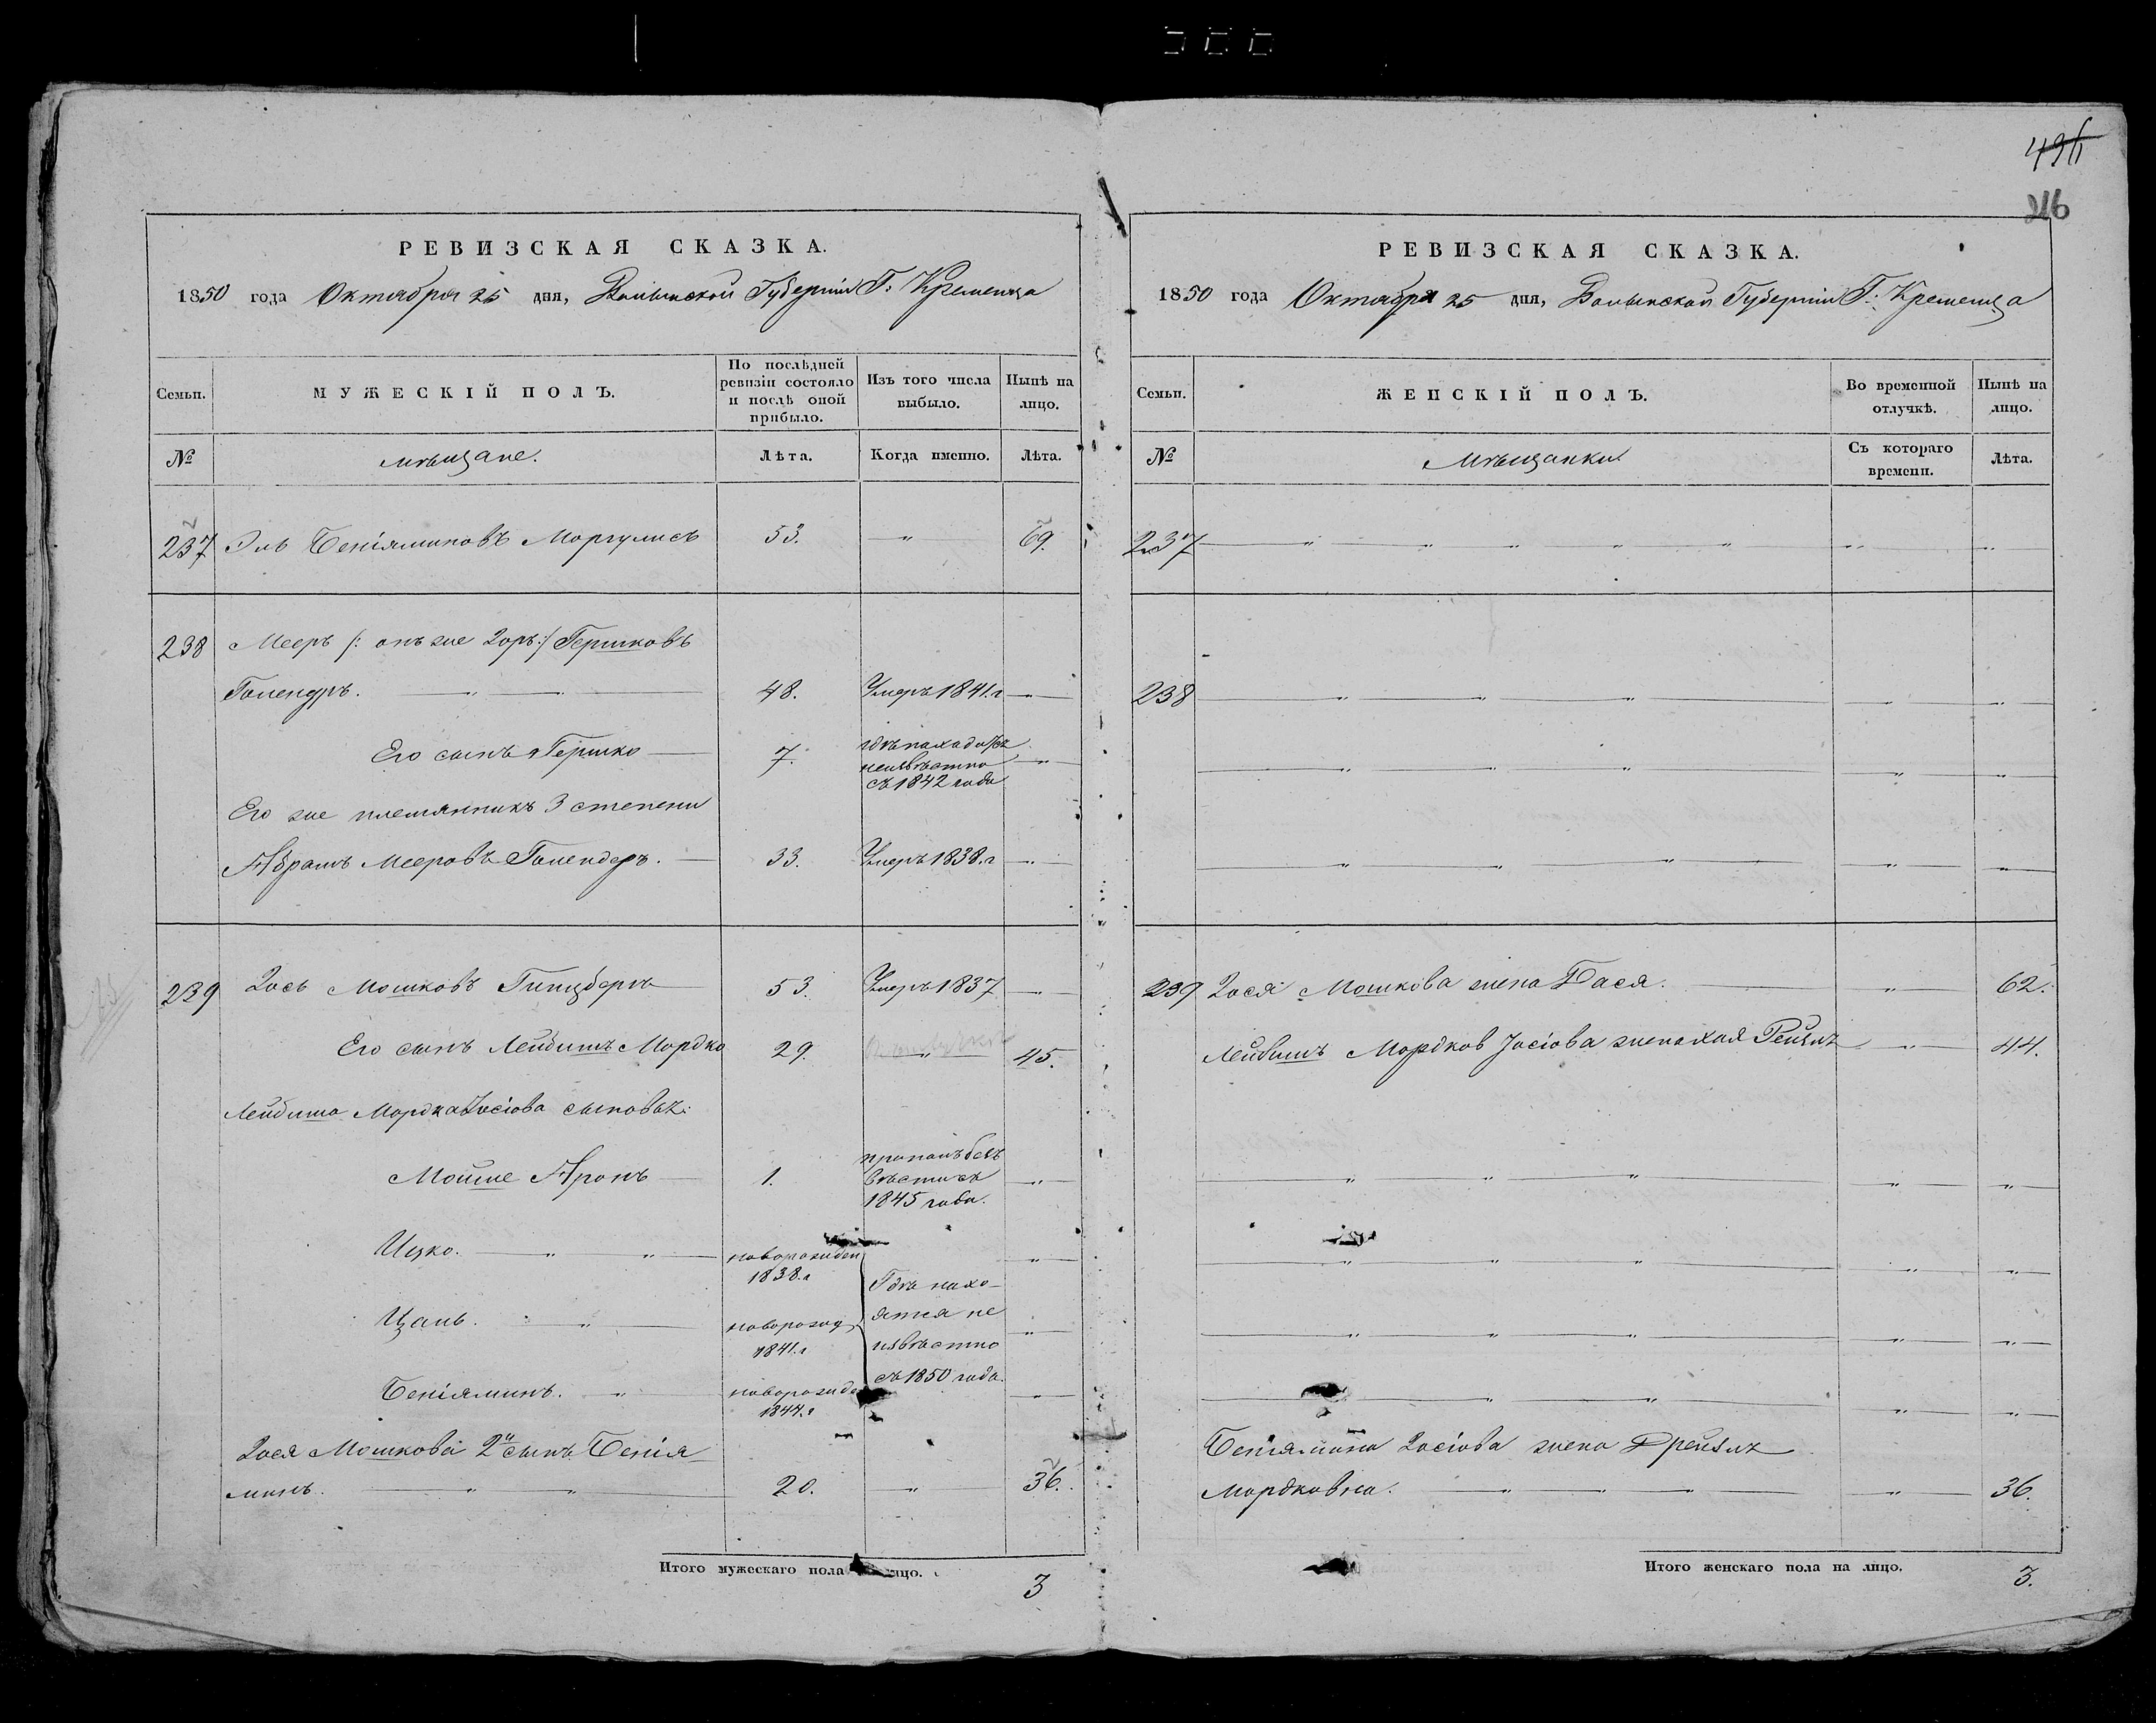 496
216
РЕВИЗСКАЯ СКАЗКА.
1850 года Октября 25 дня, Волынской Губерніи Г: Кременца
Семьи. МУЖЕСКІЙ ПОЛЪ. По послѣдней ревизіи состояло и послѣ оной прибыло. Изъ того числа выбыло. Нынѣ на лицо.
№ Мѣщане. Лѣта. Когда именно. Лѣта.
237 Эль Беніяминовъ Моргулисъ 53. " 69.
238 Мееръ /: онъ же Зоръ :/ Гершковъ
Голендръ. " 48. Умеръ 1841.г "
Его сынъ Гершко 7. гдѣ находится неизвѣстно съ 1842 года "
Его же племянникъ 3 степени
Абрамъ Мееровъ Голендеръ. 33. Умеръ 1838.г "
239 Іось Мошковъ Гинцбергъ 53. Умеръ 1837 "
Его сынъ Лейбишъ Мордко 29. " 45.
Лейбиша Мордка Іосіова сыновья:
Мойше Аронъ 1. пропалъ безъ вѣсти съ 1845 года. "
Ицко. " " новорожден 1838.г "
Цаль. " новорожд 1841.г "
Беніяминъ. " новорожде 1844.г "
Гдѣ нахо-
дятся не
извѣстно
съ 1850 года.
Іося Мошкова 2й сынъ Бенія
минъ. " " 20. " 36.
Итого мужескаго пола лицо. 3
РЕВИЗСКАЯ СКАЗКА.
1850 года Октября 25 дня, Волынской Губерніи Г: Кременца
Семьи. ЖЕНСКІЙ ПОЛЪ. Во временной отлучкѣ. Нынѣ на лицо.
№ Мѣщанки. Съ котораго времени. Лѣта.
237 " " " " " " "
238 " " " " "
" " " " "
" " " " "
239 Іося Мошкова жена Бася. " 62.
Лейбишъ Мордков Іосіова жена Рейзль " 44.
" " " " "
" " " " "
" " " " "
" " " "
Беніямина Іосіова жена Дрейзль
Мордковна. " " " " 36.
Итого женскаго пола на лицо. 3.